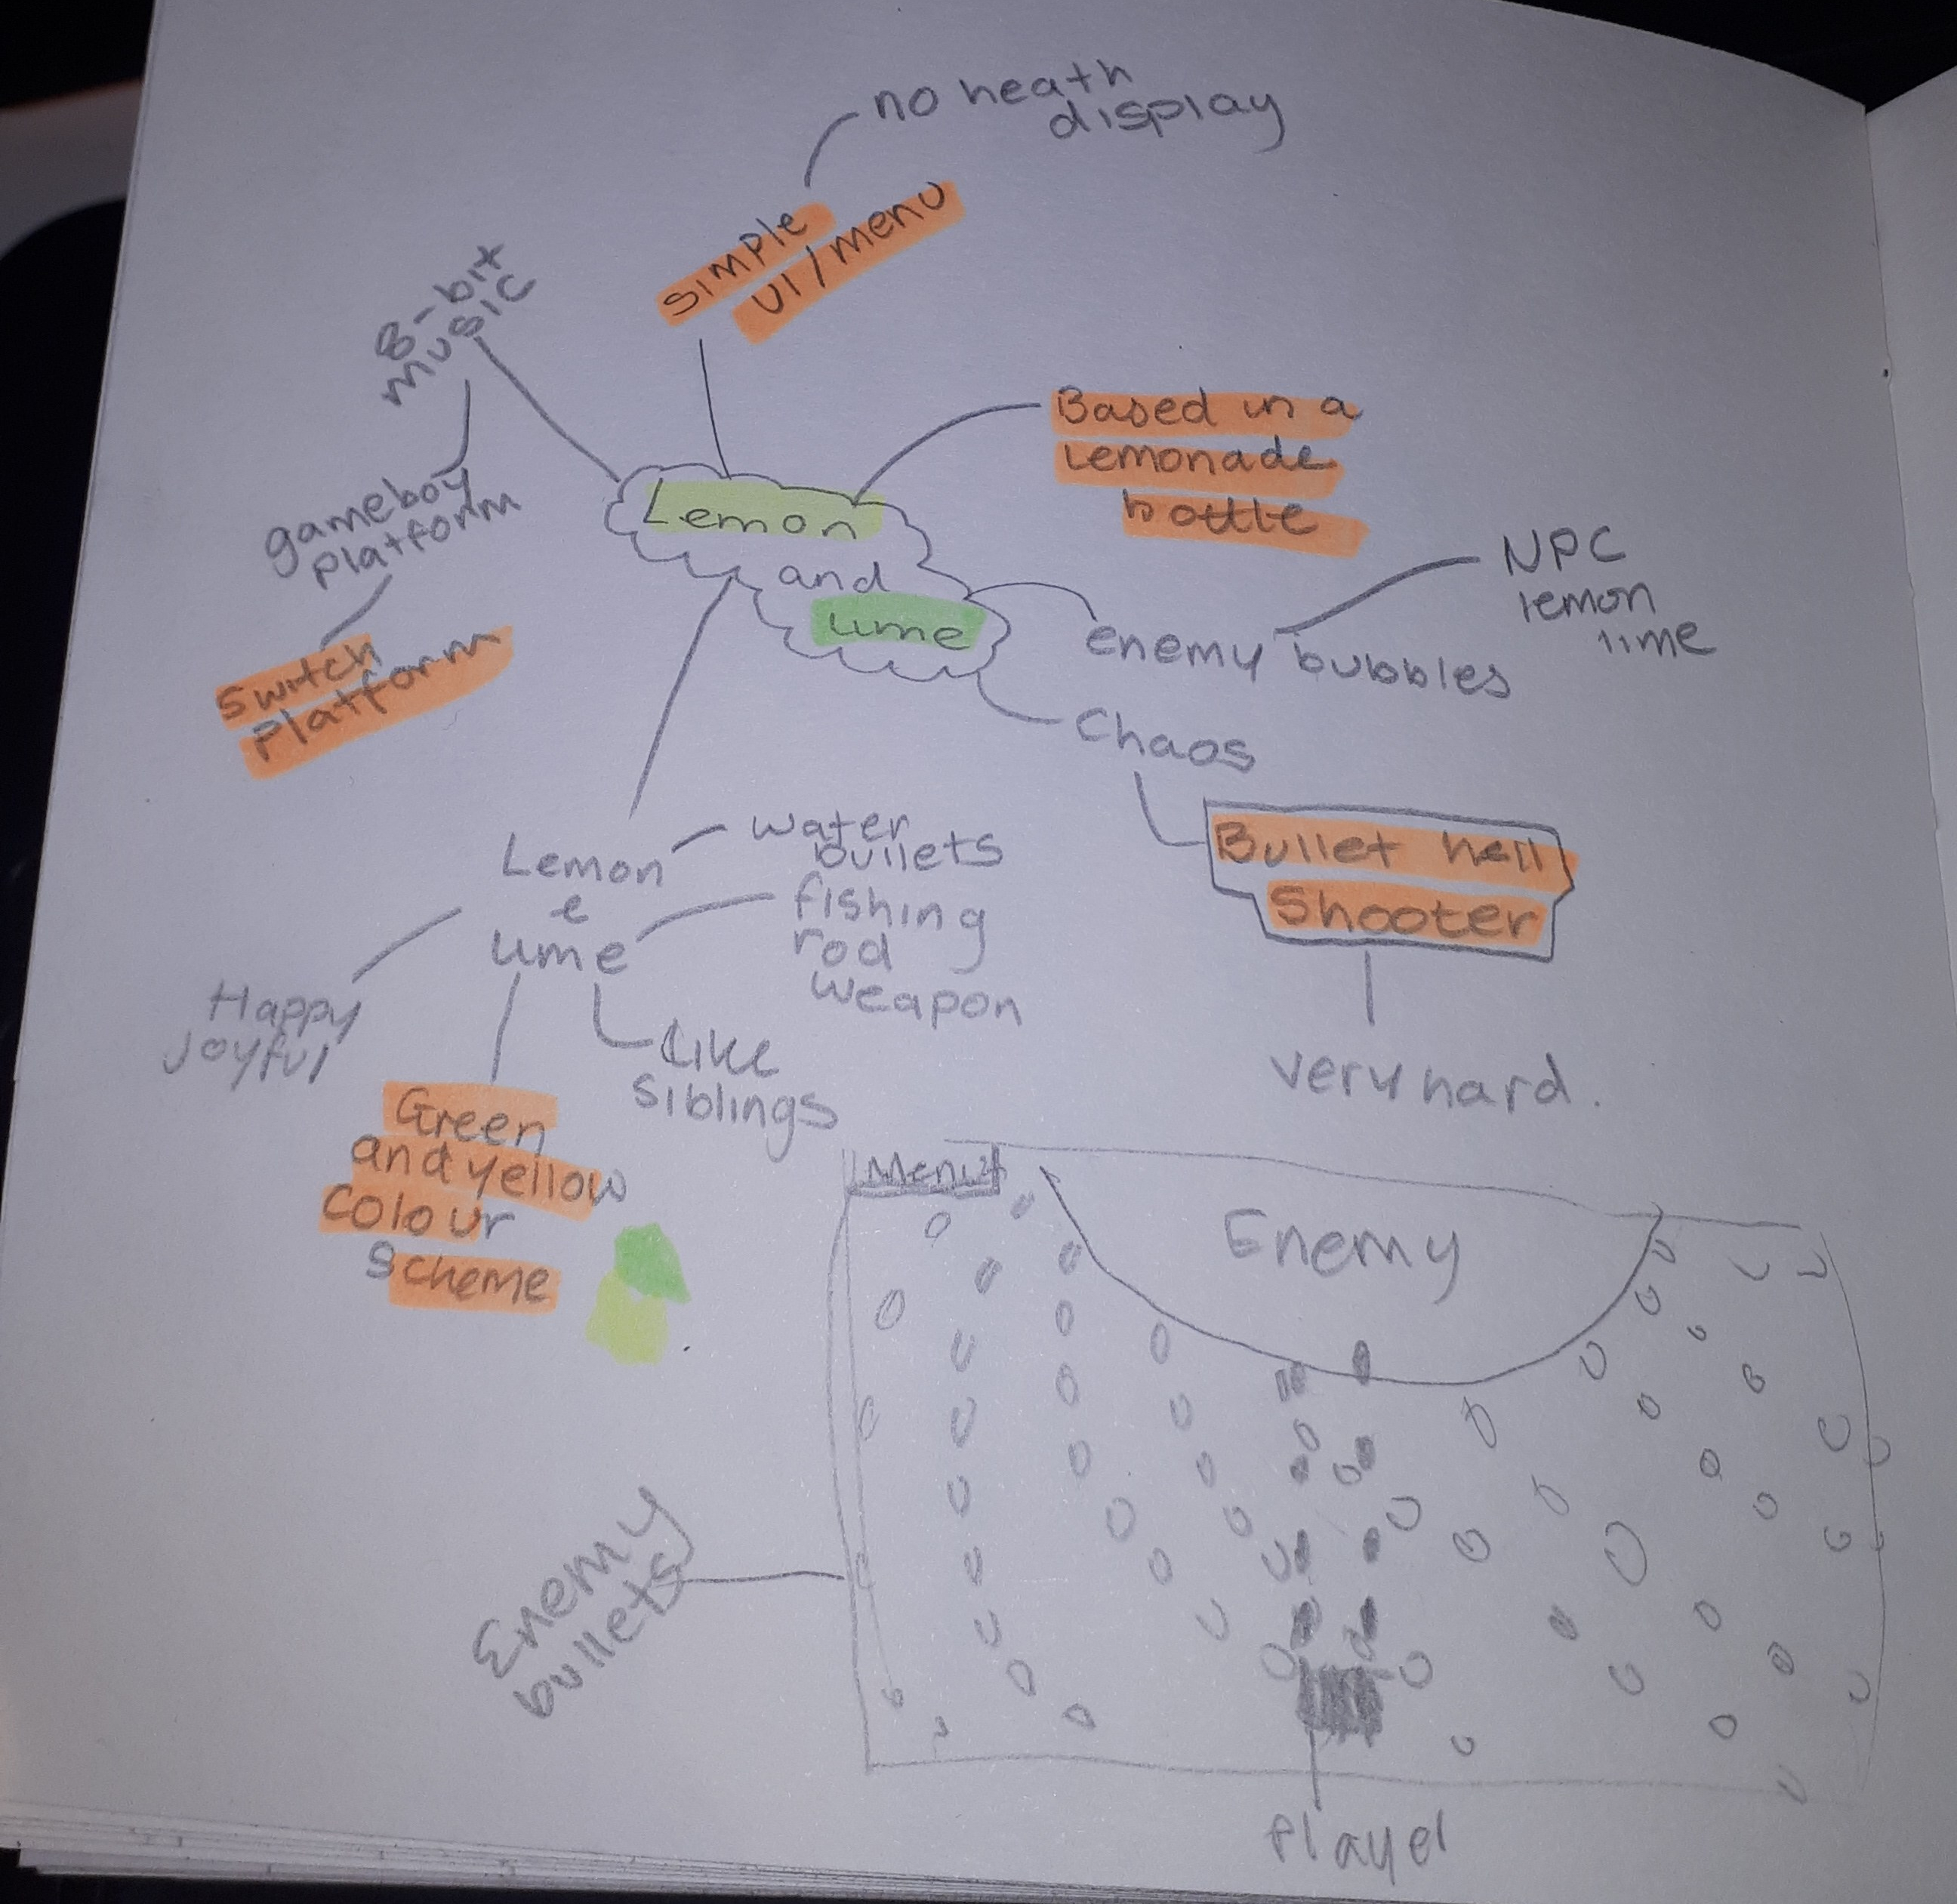 no heath
display
simple
UI/menu
8-bit
music
Based in a
Lemonade
bottle
gameboy
platform
Lemon
and
Lime
NPC
lemon
lime
enemy bubbles
Switch
Platform
Chaos
Bullet hell
Shooter
very hard.
Lemon
e
Lime
water
bullets
fishing
rod
weapon
Happy
joyful
Like
siblings
Green
and yellow
colour
scheme
Menu
Enemy
Enemy
bullets
Player